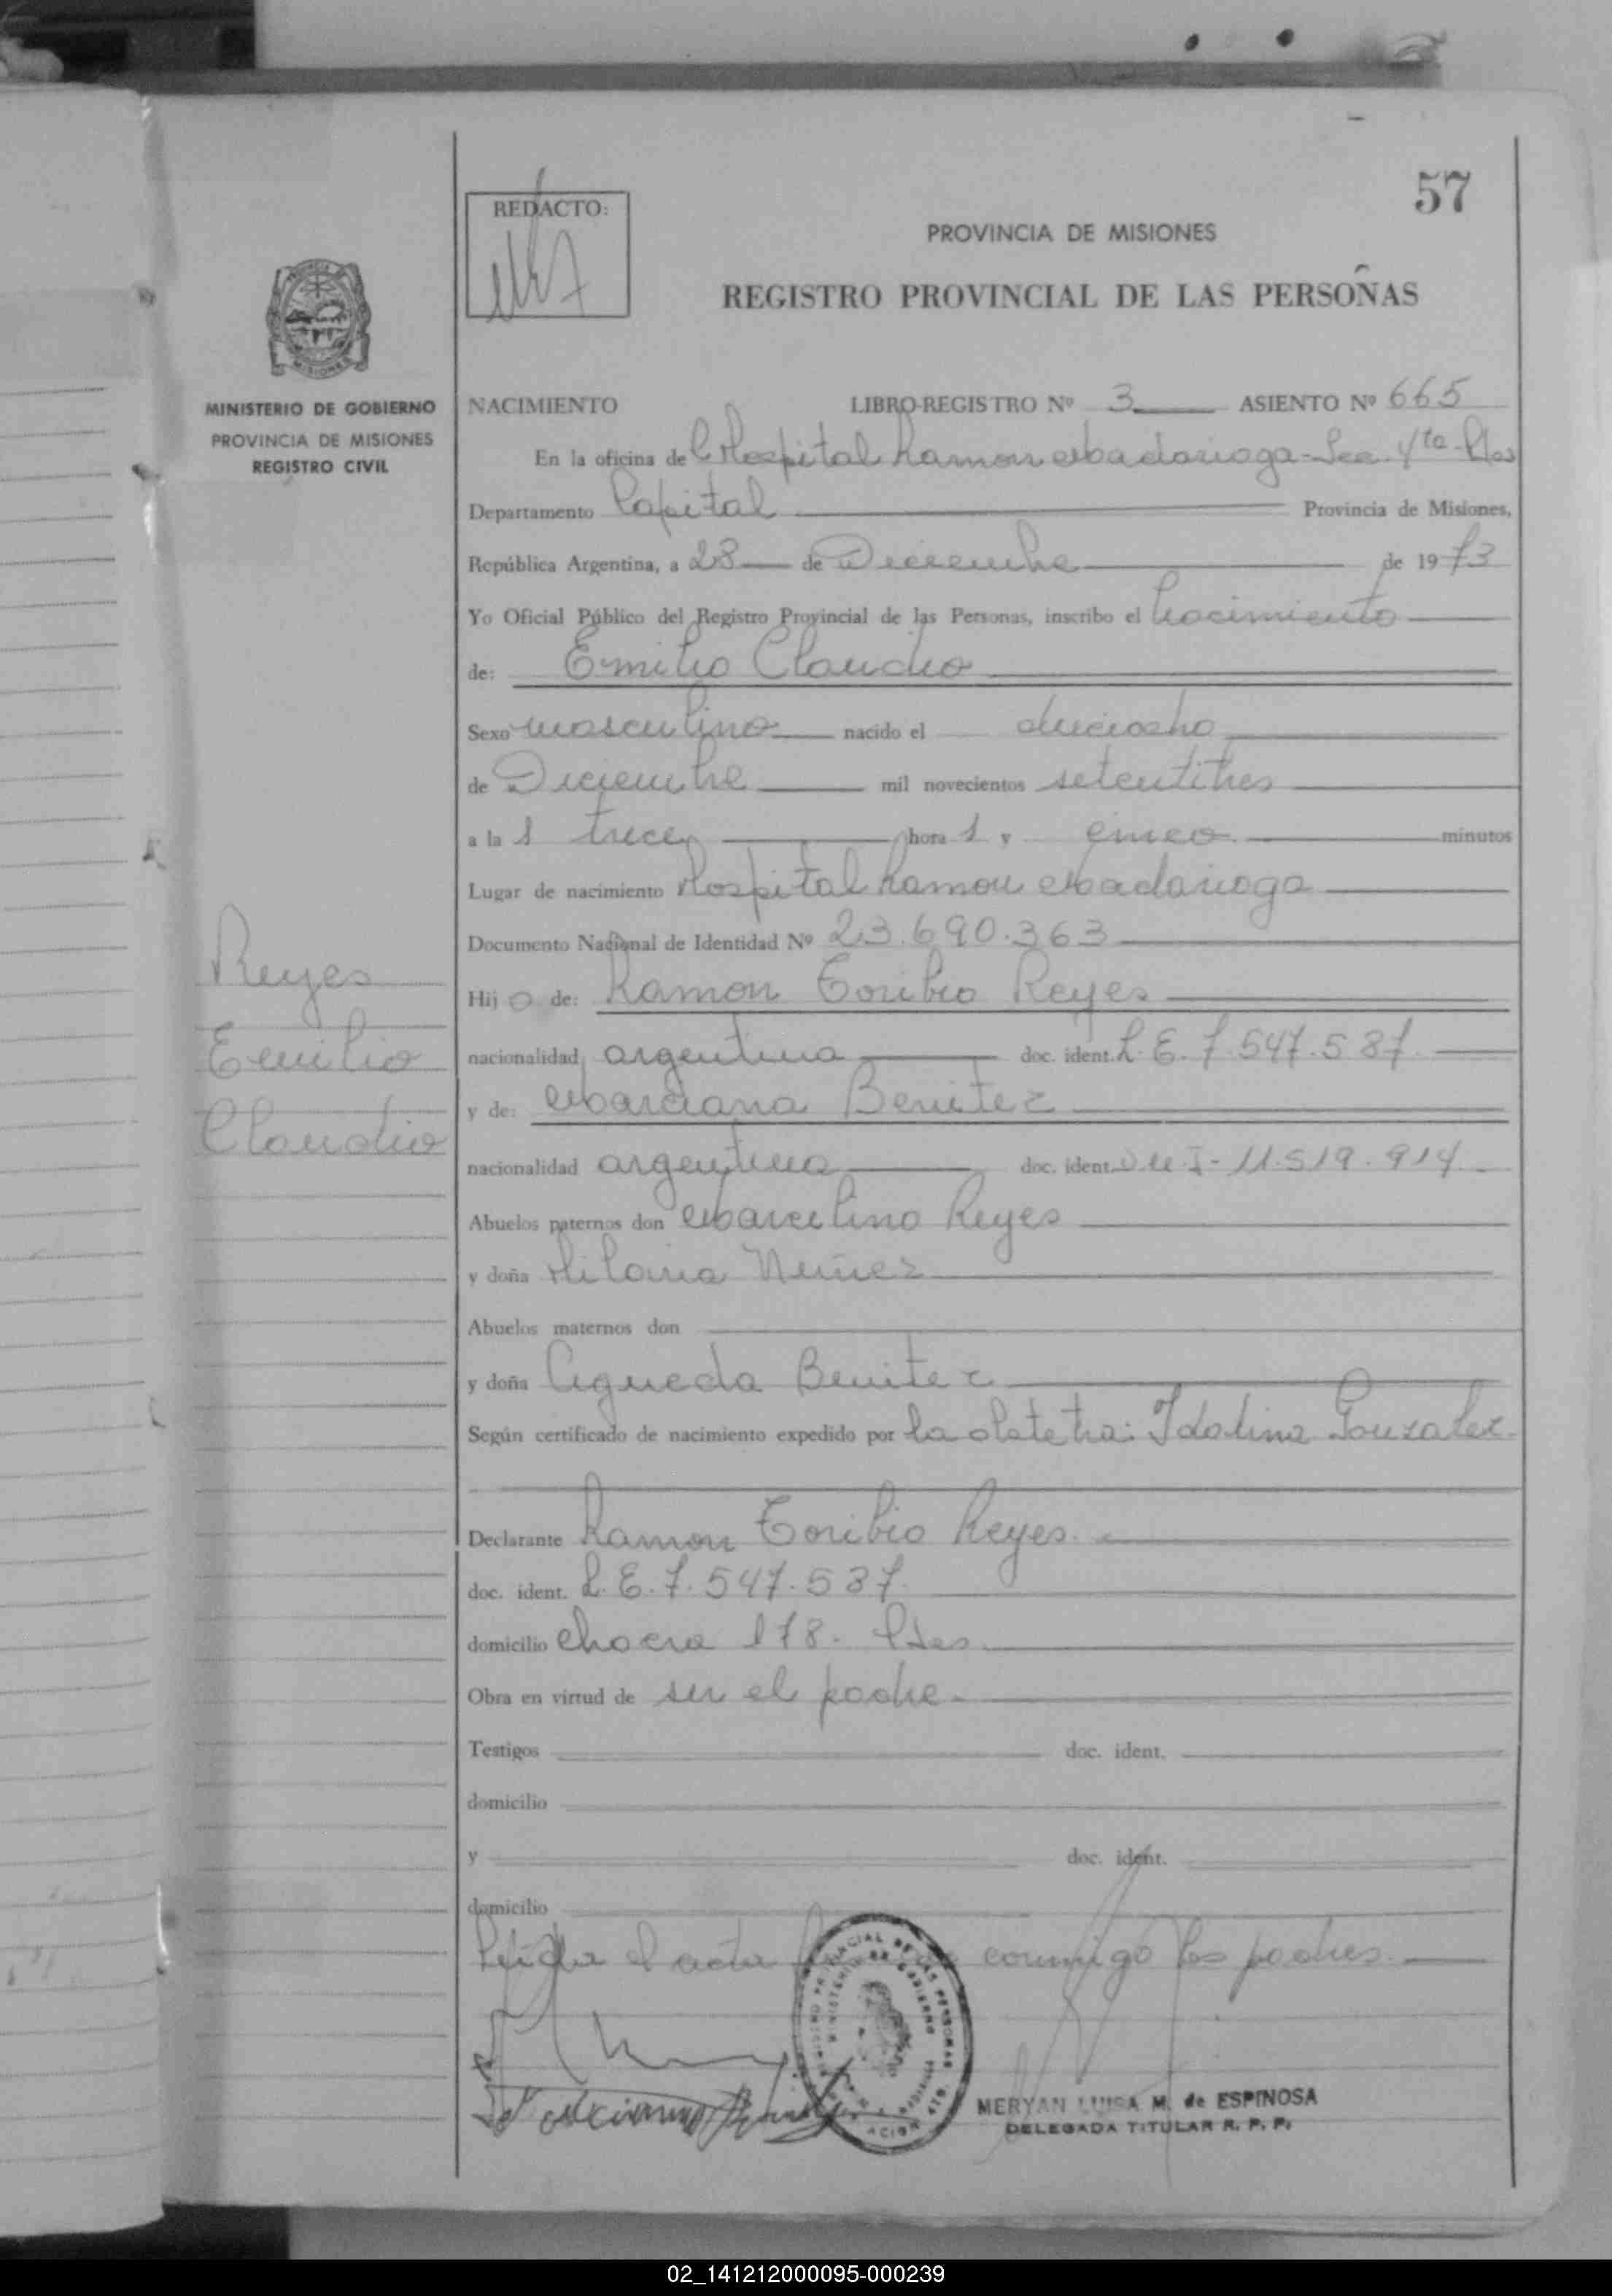 57
REDACTO:
PROVINCIA DE MISIONES
REGISTRO PROVINCIAL DE LAS PERSONAS
MINISTERIO DE GOBIERNO
PROVINCIA DE MISIONES
REGISTRO CIVIL
NACIMIENTO LIBRO-REGISTRO Nº 3 ASIENTO Nº 665
En la oficina de Hospital Ramon Madariaga - Sec. 4ta - Pdas
Departamento Capital Provincia de Misiones,
República Argentina, a 28 de Diciembre de 1973
Yo Oficial Público del Registro Provincial de las Personas, inscribo el nacimiento
de: Emilio Claudio
Sexo masculino nacido el dieciocho
de Diciembre mil novecientos setentitres
a la s trece hora s y cinco minutos
Lugar de nacimiento Hospital Ramon Madariaga
Documento Nacional de Identidad Nº 23.690.363
Reyes
Emilio
Claudio
Hij o de: Ramon Toribio Reyes
nacionalidad argentina doc. ident. L.E. 7.547.587
y de: Marciana Benitez
nacionalidad argentina doc. ident. D.N.I - 11.519.914
Abuelos paternos don Marcelino Reyes
y doña Hilaria Nuñez
Abuelos maternos don
y doña Agueda Benitez
Según certificado de nacimiento expedido por la obstetra: Idolina Gonzalez
Declarante Ramon Toribio Reyes
doc. ident. L.E. 7.547.587
domicilio Chacra 178 - Pdas
Obra en virtud de ser el padre
Testigos doc. ident.
domicilio
y doc. ident.
domicilio
Leída el acta conmigo los padres.
MERYAN LUISA M. de ESPINOSA
DELEGADA TITULAR R. P. P.
02_141212000095-000239